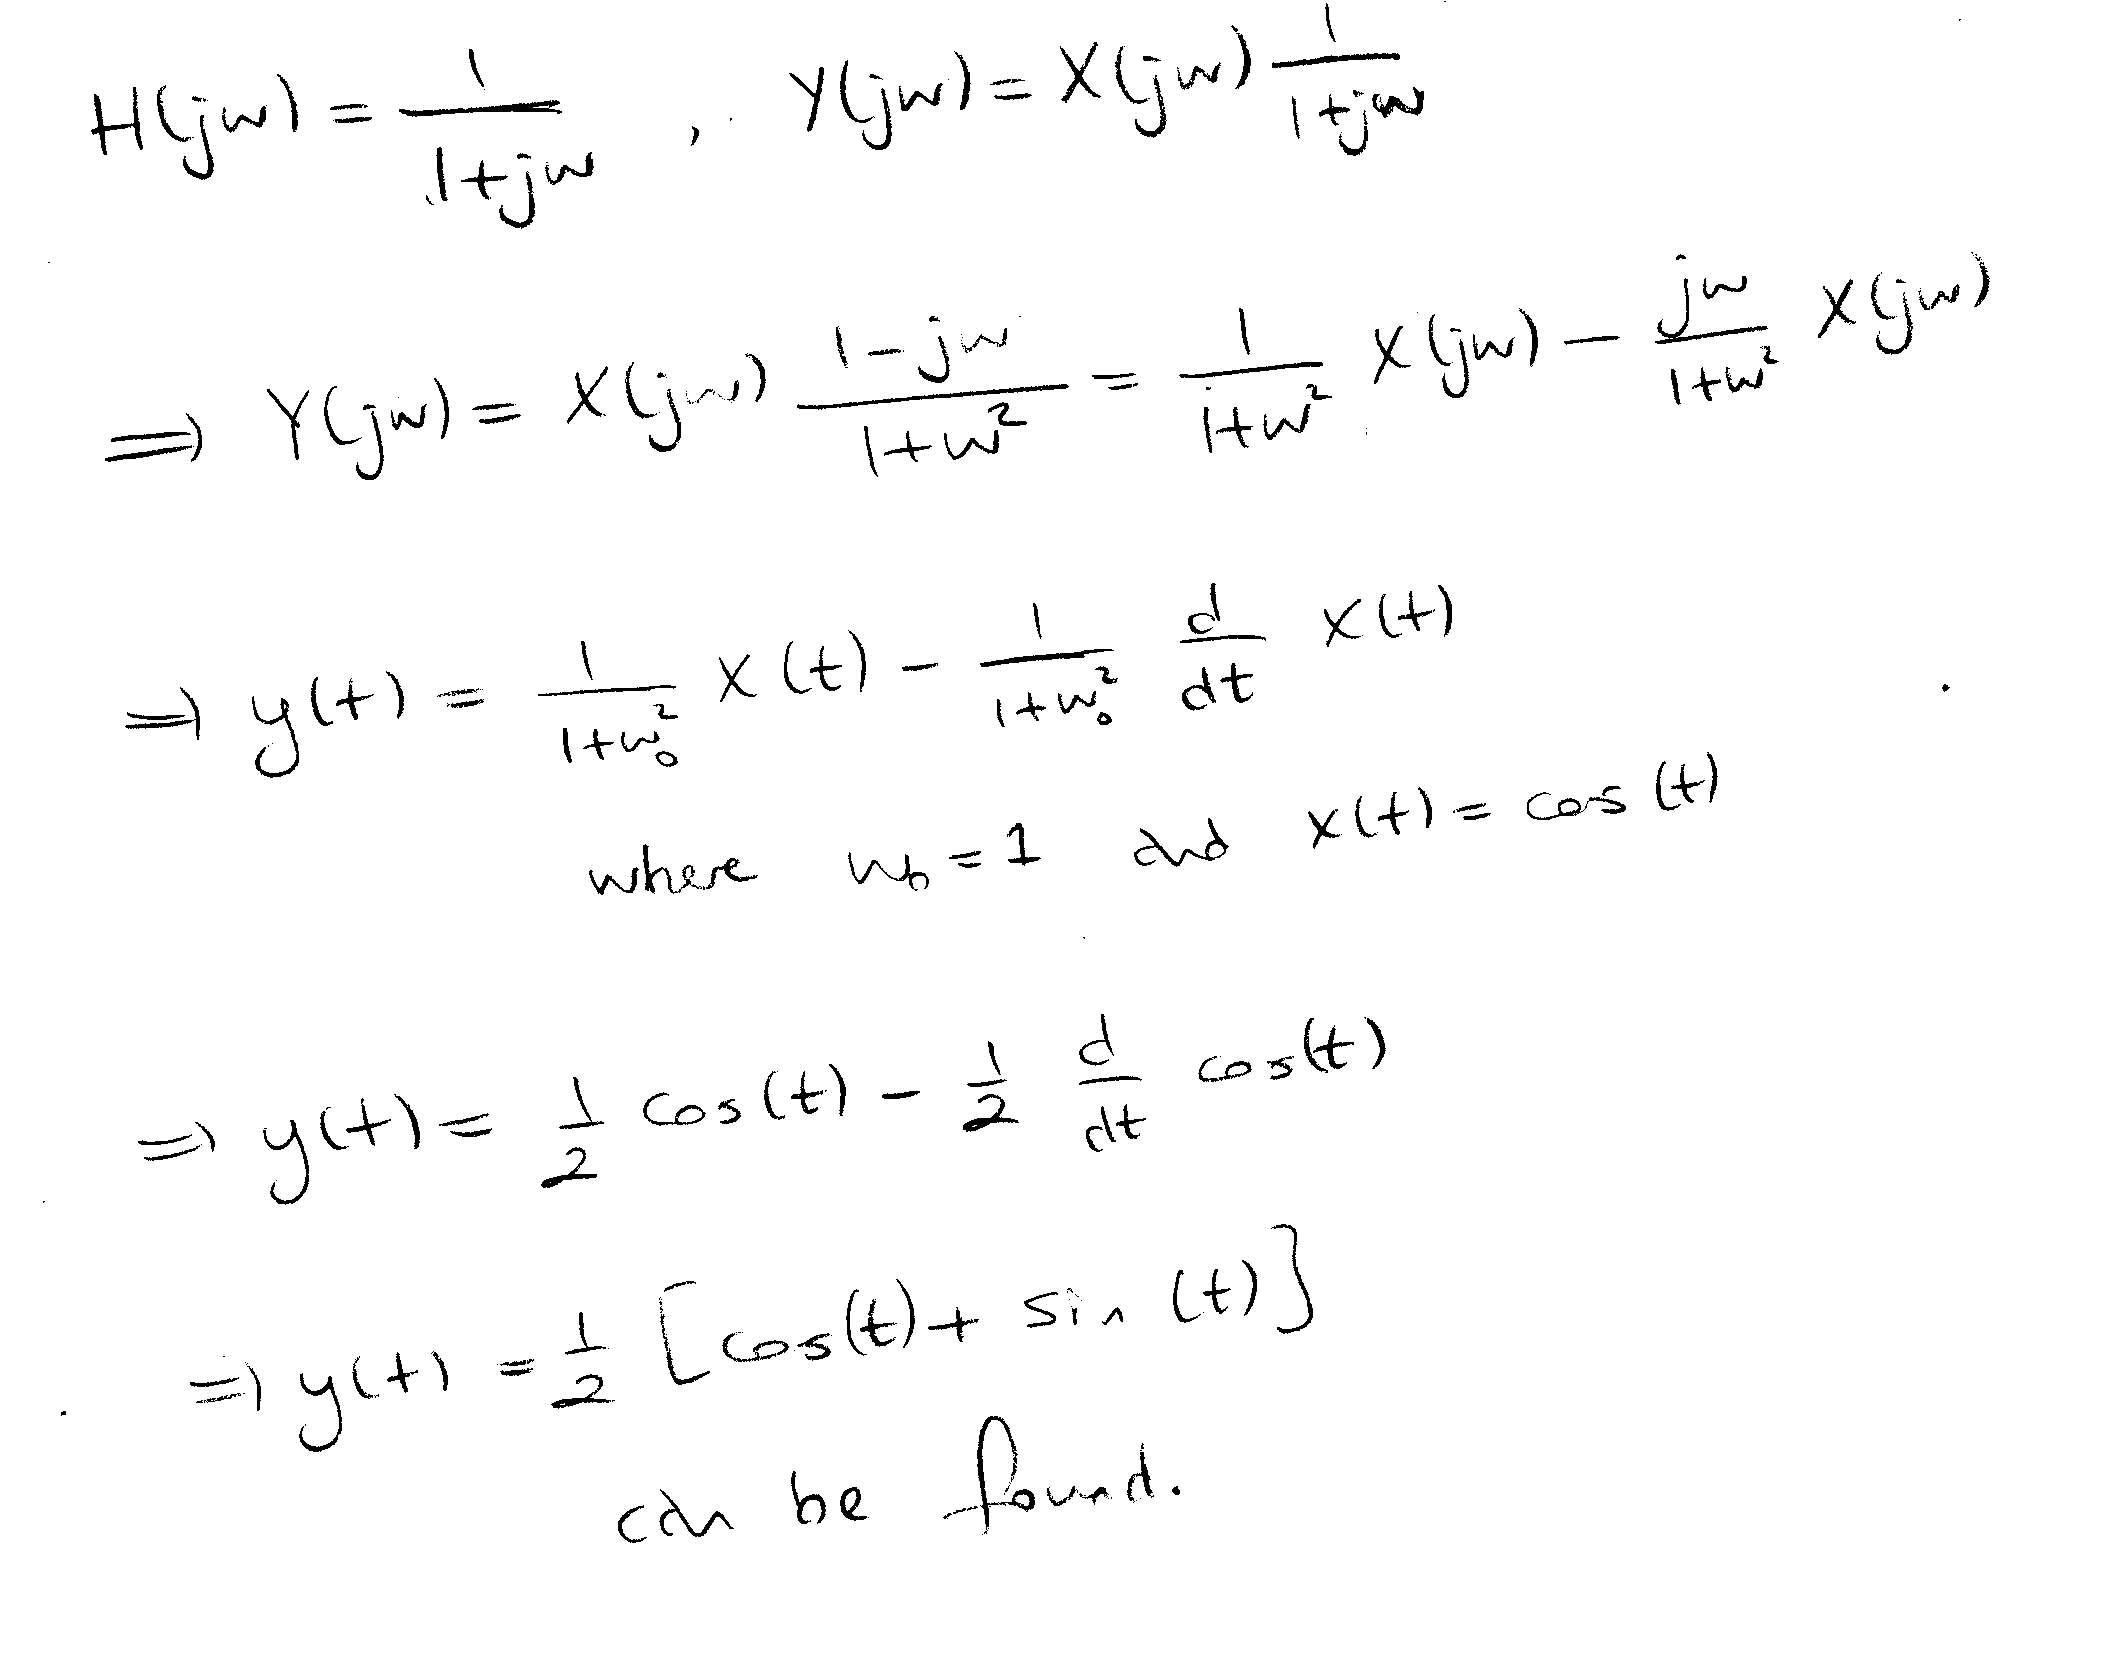 H(jw) = 1/(1+jw) , Y(jw) = X(jw) 1/(1+jw)
⇒ Y(jw) = X(jw) (1-jw)/(1+w²) = 1/(1+w²) X(jw) - jw/(1+w²) X(jw)
⇒ y(t) = 1/(1+w₀²) x(t) - 1/(1+w₀²) d/dt x(t)
where w₀ = 1 and x(t) = cos(t)
⇒ y(t) = 1/2 cos(t) - 1/2 d/dt cos(t)
⇒ y(t) = 1/2 [cos(t) + sin(t)]
can be found.